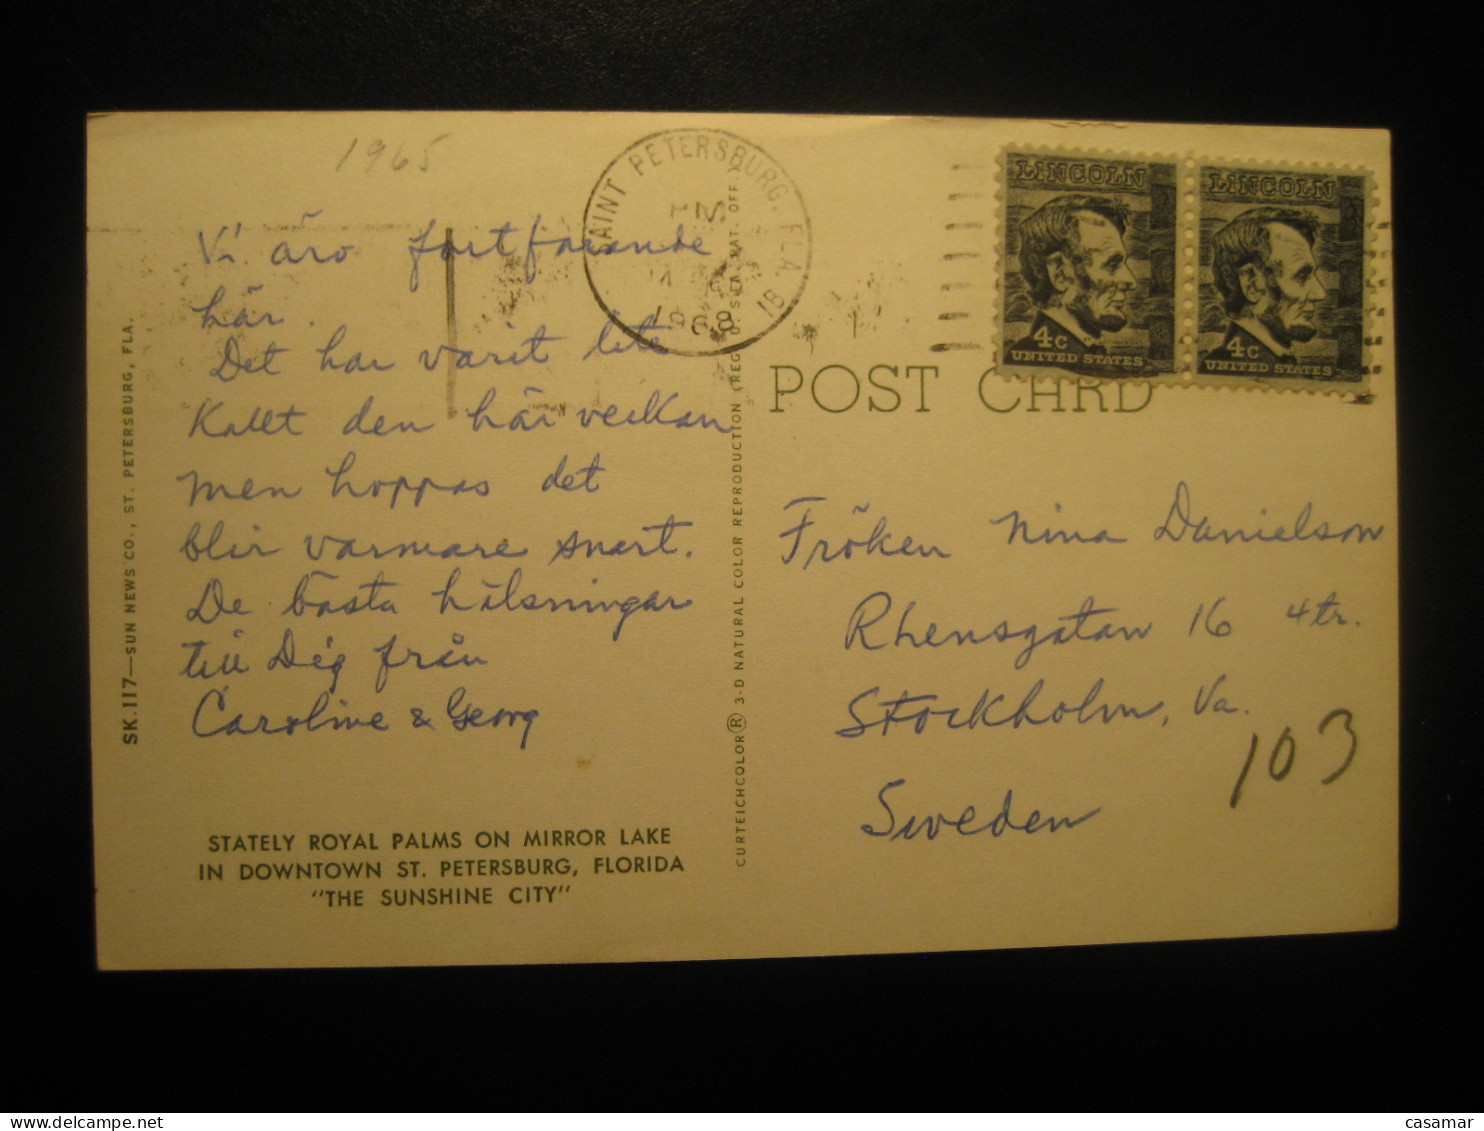 1965
Vi äro fortfarande
här.
Det har varit lite
Kallt den här veckan
men hoppas det
blir varmare snart.
De bästa hälsningar
till Dig från
Caroline & Georg
STATELY ROYAL PALMS ON MIRROR LAKE
IN DOWNTOWN ST. PETERSBURG, FLORIDA
"THE SUNSHINE CITY"
SK.117—SUN NEWS CO., ST. PETERSBURG, FLA.
SAINT PETERSBURG, FLA. 18
PM
1968
CURTEICHCOLOR® 3-D NATURAL COLOR REPRODUCTION (REG. U.S.A. PAT. OFF.)
LINCOLN
4c
UNITED STATES
LINCOLN
4c
UNITED STATES
POST CARD
Fröken Nina Danielson
Rhensgatan 16 4tr.
Stockholm, Va.
Sweden
103
casamar